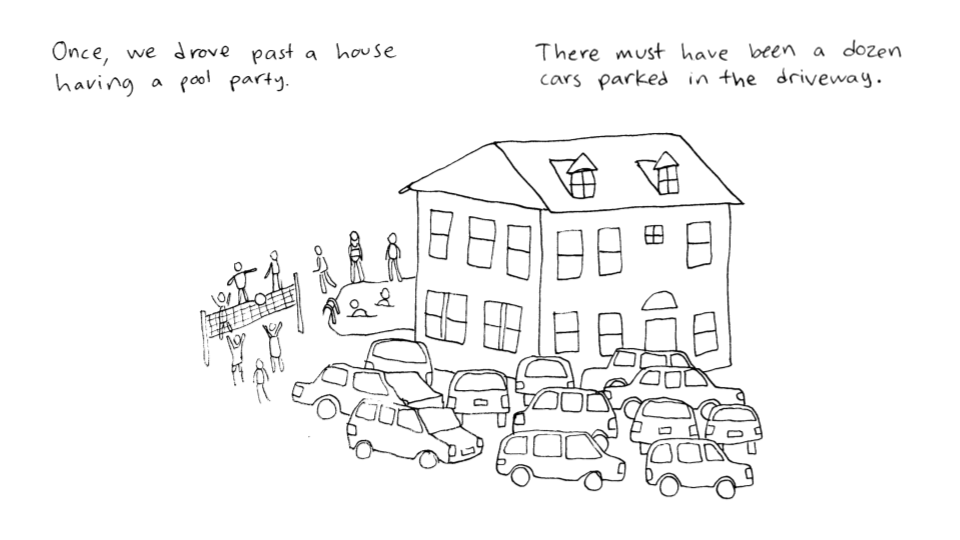 Once, we drove past a house
having a pool party.
There must have been a dozen
cars parked in the driveway.